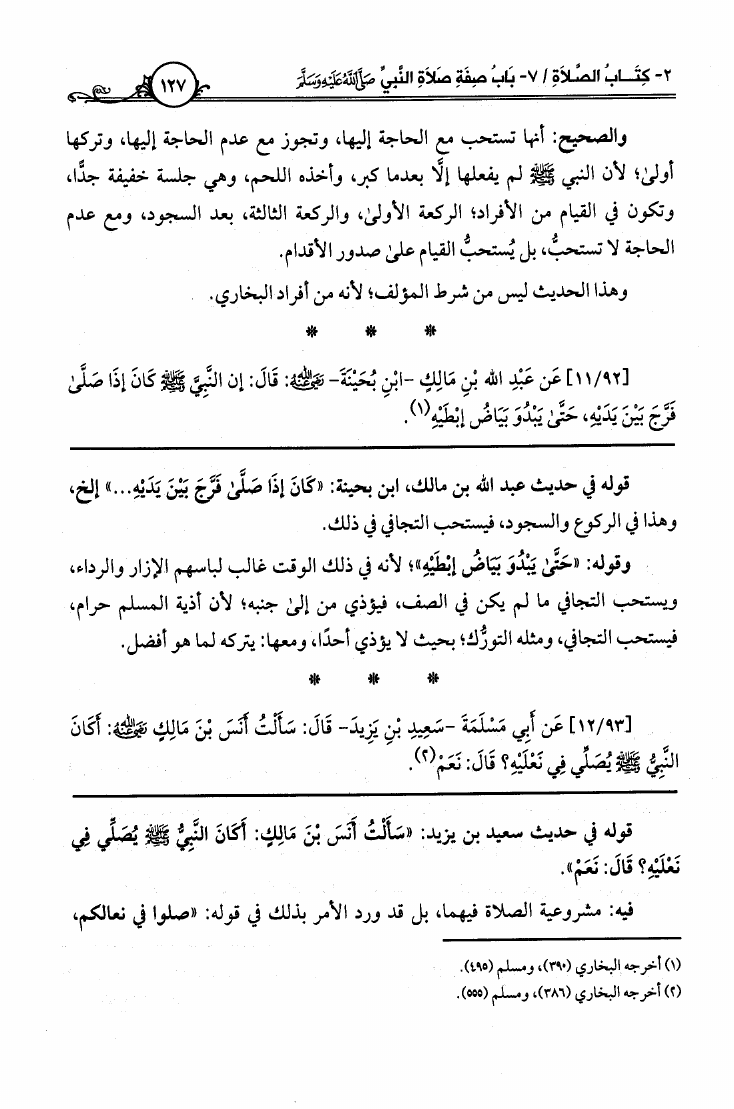 ٢- كِتَـــابُ الصَّلَاةِ / ٧- بَابُ صِفَةِ صَلَاةِ النَّبِيِّ صَلَّى اللَّهُ عَلَيْهِ وَسَلَّمَ
١٢٧
والصحيح: أنها تستحب مع الحاجة إليها، وتجوز مع عدم الحاجة إليها، وتركها
أولىٰ؛ لأن النبي ﷺ لم يفعلها إلَّا بعدما كبر، وأخذه اللحم، وهي جلسة خفيفة جدًّا،
وتكون في القيام من الأفراد؛ الركعة الأولىٰ، والركعة الثالثة، بعد السجود، ومع عدم
الحاجة لا تستحبُّ، بل يُستحبُّ القيام علىٰ صدور الأقدام.
وهذا الحديث ليس من شرط المؤلف؛ لأنه من أفراد البخاري.
* * *
[١١/٩٢] عَن عَبْدِ الله بْنِ مَالِكٍ -ابْنِ بُحَيْنَةَ- رَضِيَ اللَّهُ عَنْهُ: قَالَ: إن النَّبِيَّ ﷺ كَانَ إذَا صَلَّىٰ
فَرَّجَ بَيْنَ يَدَيْهِ، حَتَّىٰ يَبْدُوَ بَيَاضُ إبْطَيْهِ(١).
قوله في حديث عبد الله بن مالك، ابن بحينة: «كَانَ إذَا صَلَّىٰ فَرَّجَ بَيْنَ يَدَيْهِ...» إلخ،
وهذا في الركوع والسجود، فيستحب التجافي في ذلك.
وقوله: «حَتَّىٰ يَبْدُوَ بَيَاضُ إبْطَيْهِ»؛ لأنه في ذلك الوقت غالب لباسهم الإزار والرداء،
ويستحب التجافي ما لم يكن في الصف، فيؤذي من إلىٰ جنبه؛ لأن أذية المسلم حرام،
فيستحب التجافي، ومثله التورُّك؛ بحيث لا يؤذي أحدًا، ومعها: يتركه لما هو أفضل.
* * *
[١٢/٩٣] عَن أَبِي مَسْلَمَةَ -سَعِيدِ بْنِ يَزِيدَ- قَالَ: سَأَلْتُ أَنَسَ بْنَ مَالِكٍ رَضِيَ اللَّهُ عَنْهُ: أَكَانَ
النَّبِيُّ ﷺ يُصَلِّي فِي نَعْلَيْهِ؟ قَالَ: نَعَمْ(٢).
قوله في حديث سعيد بن يزيد: «سَأَلْتُ أَنَسَ بْنَ مَالِكٍ: أَكَانَ النَّبِيُّ ﷺ يُصَلِّي فِي
نَعْلَيْهِ؟ قَالَ: نَعَمْ».
فيه: مشروعية الصلاة فيهما، بل قد ورد الأمر بذلك في قوله: «صلوا في نعالكم،
(١) أخرجه البخاري (٣٩٠)، ومسلم (٤٩٥).
(٢) أخرجه البخاري (٣٨٦)، ومسلم (٥٥٥).